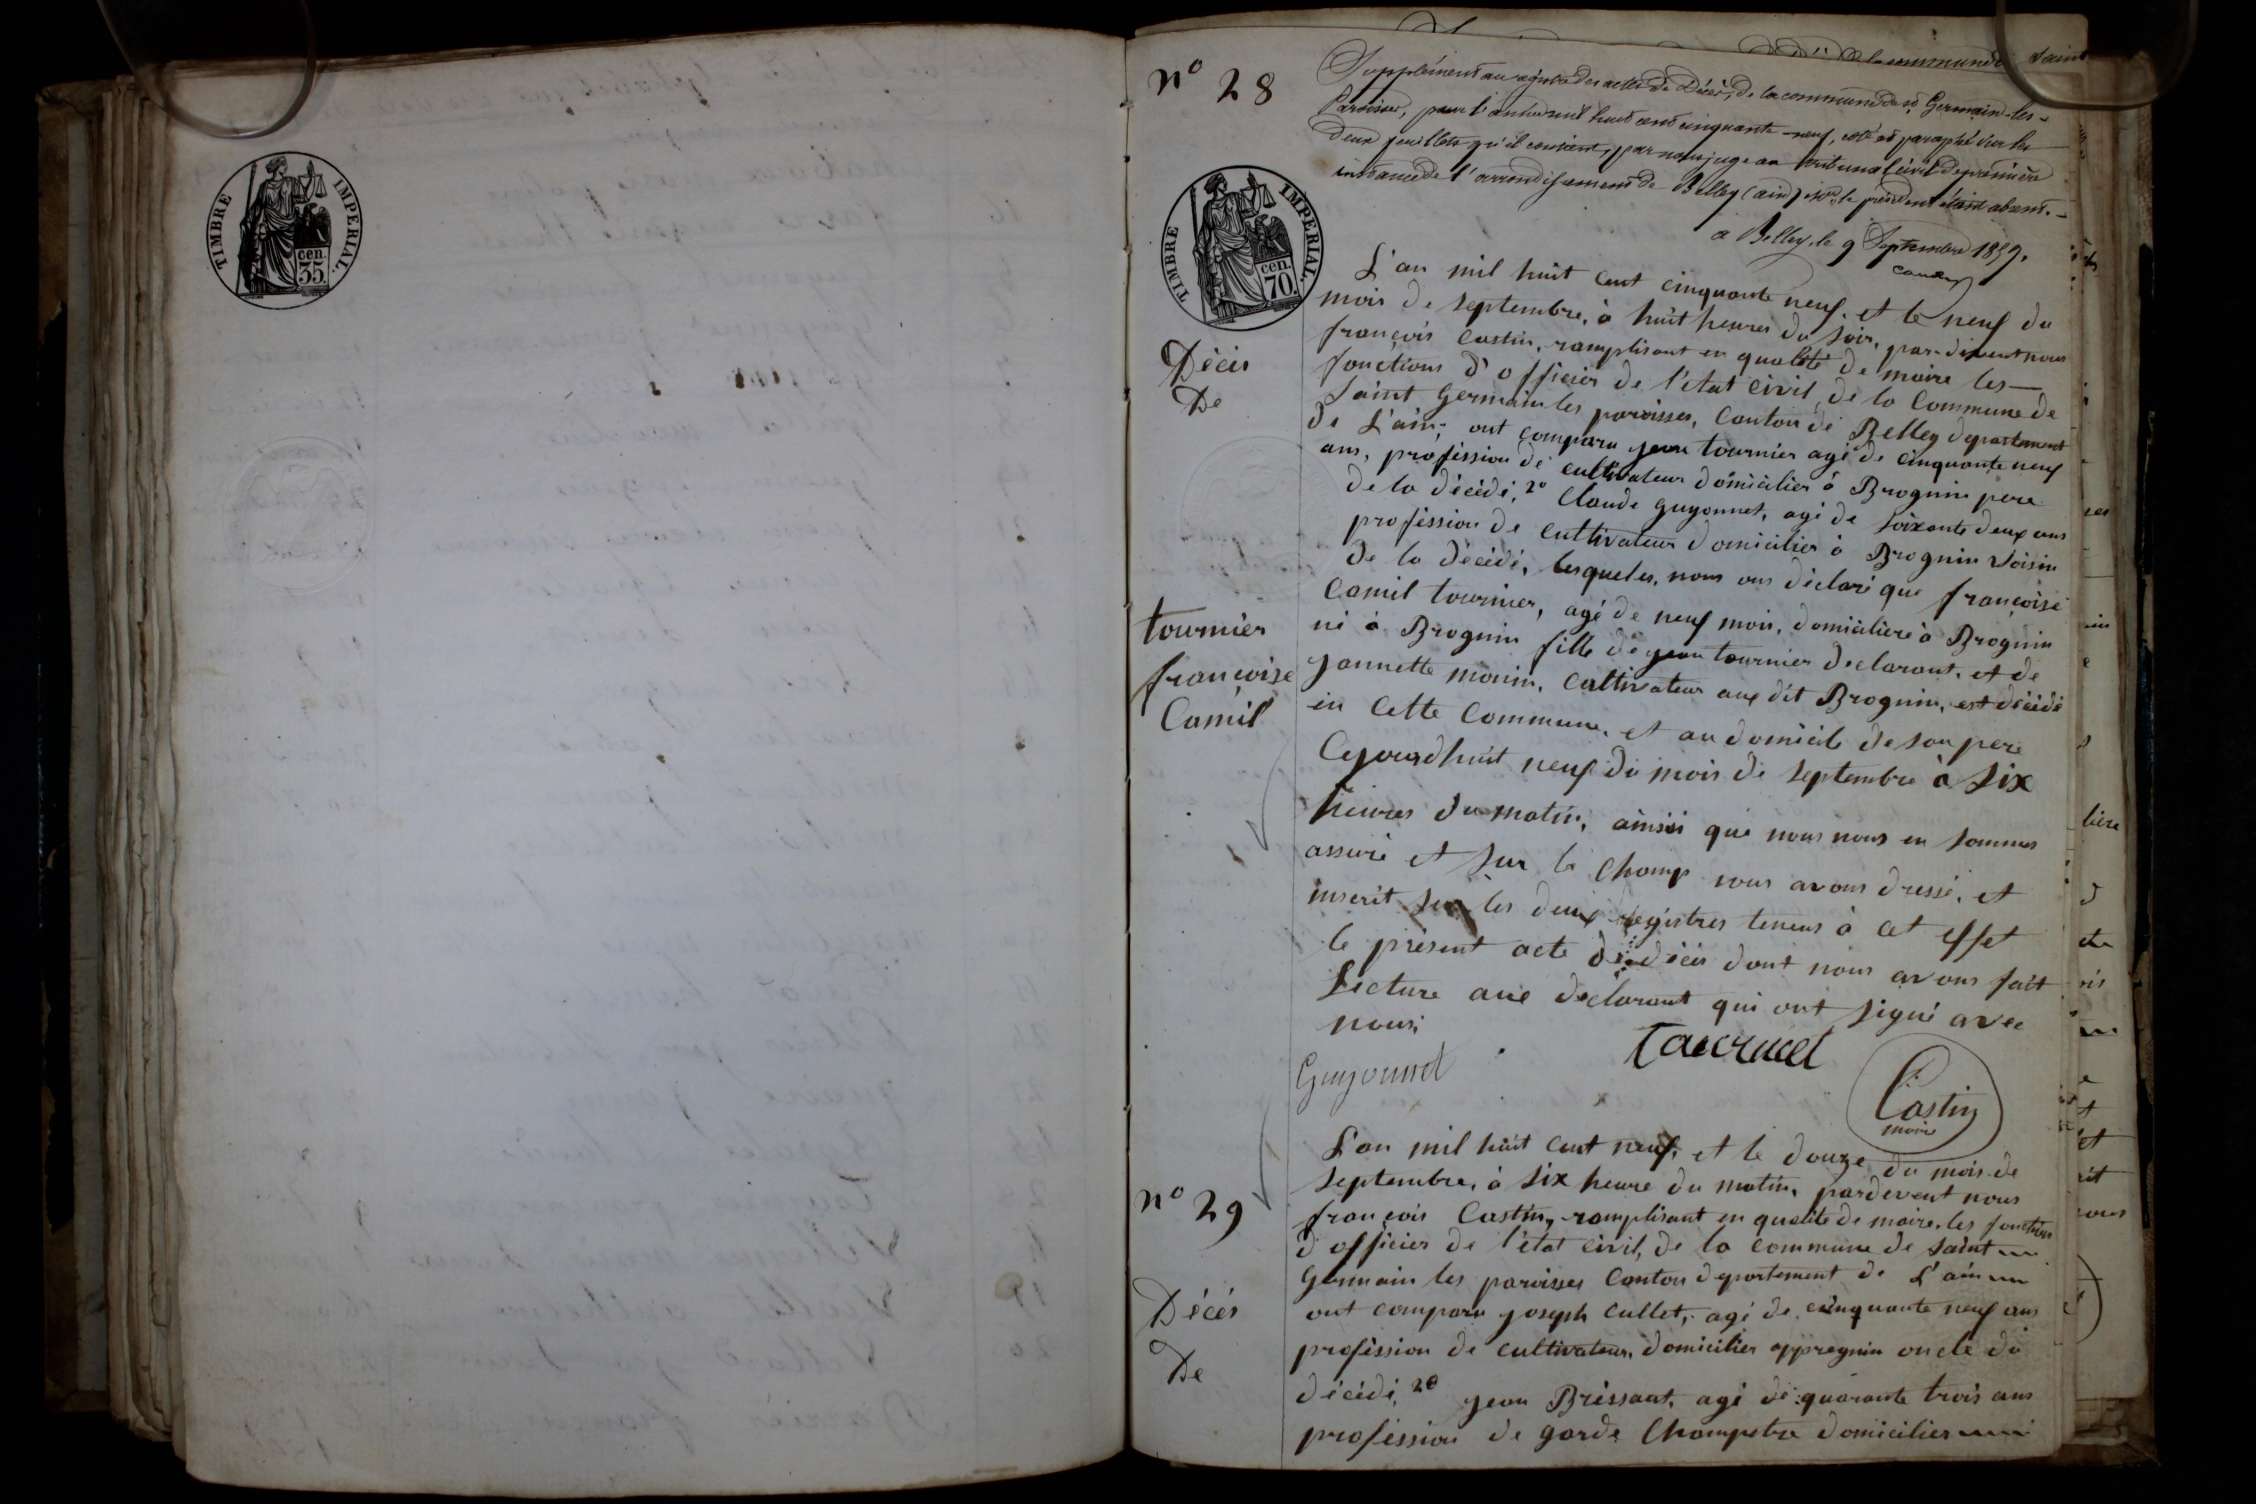 TIMBRE IMPERIAL.
cen. 35.
nº 28
Supplément au registre des actes de Décès, de la commune de St Germain-les-
Paroisses, pour l'année mil huit cent cinquante-neuf, coté et paraphé sur les
deux feuillets qu'il contient, par nous juge au tribunal civil de première
instance de l'arrondissement de Belley (ain) le président étant absent.
à Belley, le 9 Septembre 1859.
TIMBRE IMPERIAL.
cen. 70.
Décès
De
tournier
françoise
Camil
L'an mil huit cent cinquante neuf. et le neuf du
mois de septembre, à huit heures du soir, par-devent nous
françois Castin, ramplisant en qualité de maire les
fonctions d'officier de l'état civil, de la Commune de
saint germain les paroisses, Canton de Belley departement
de L'ain; ont comparu jean tournier agé de cinquante neuf
ans, profession de cultivateur domicilier à Brognin pere
de la décédé, 2º Claude guyonnet, agé de soixante deux ans
profession de cultivateur domicilier à Brognin voisin
de la décédé, lesqueles, nous ons déclaré que françoise
Camil tournier, agé de neuf mois, domiciliere à Brognin
né à Brognin fille de jean tournier declarant, et de
jannette monin, cultivateur aux dit Brognin, est décédé
in cette Commune, et au domicile de son pere
Cejourdhuit neuf du mois de septembre à six
heures du matin, ainsi que nous nous en sommes
assuré et sur le champ nous avons dressé, et
inscrit sur les deux registres teneus à cet effet
le présent acte de décès dont nous avons fait
Lecture aux déclarant qui ont signé avec
nous;
Guyonnet
Castin
maire
nº 29
Décès
De
L'an mil huit cent neuf, et le douze du mois de
septembre, à six heure du matin, pardevent nous
françois Castin, ramplisant en qualité de maire, les fonction
d'officier de l'état civil, de la commune de saint
germain les paroisses Canton departement de L'ain
ont comparu joseph Cullet, agé de cinquante neuf ans
profession de cultivateur, domicilier appregnin oncle du
décédé, 2º jean Brissant, agé de quarante trois ans
profession de garde Champetre domicilier